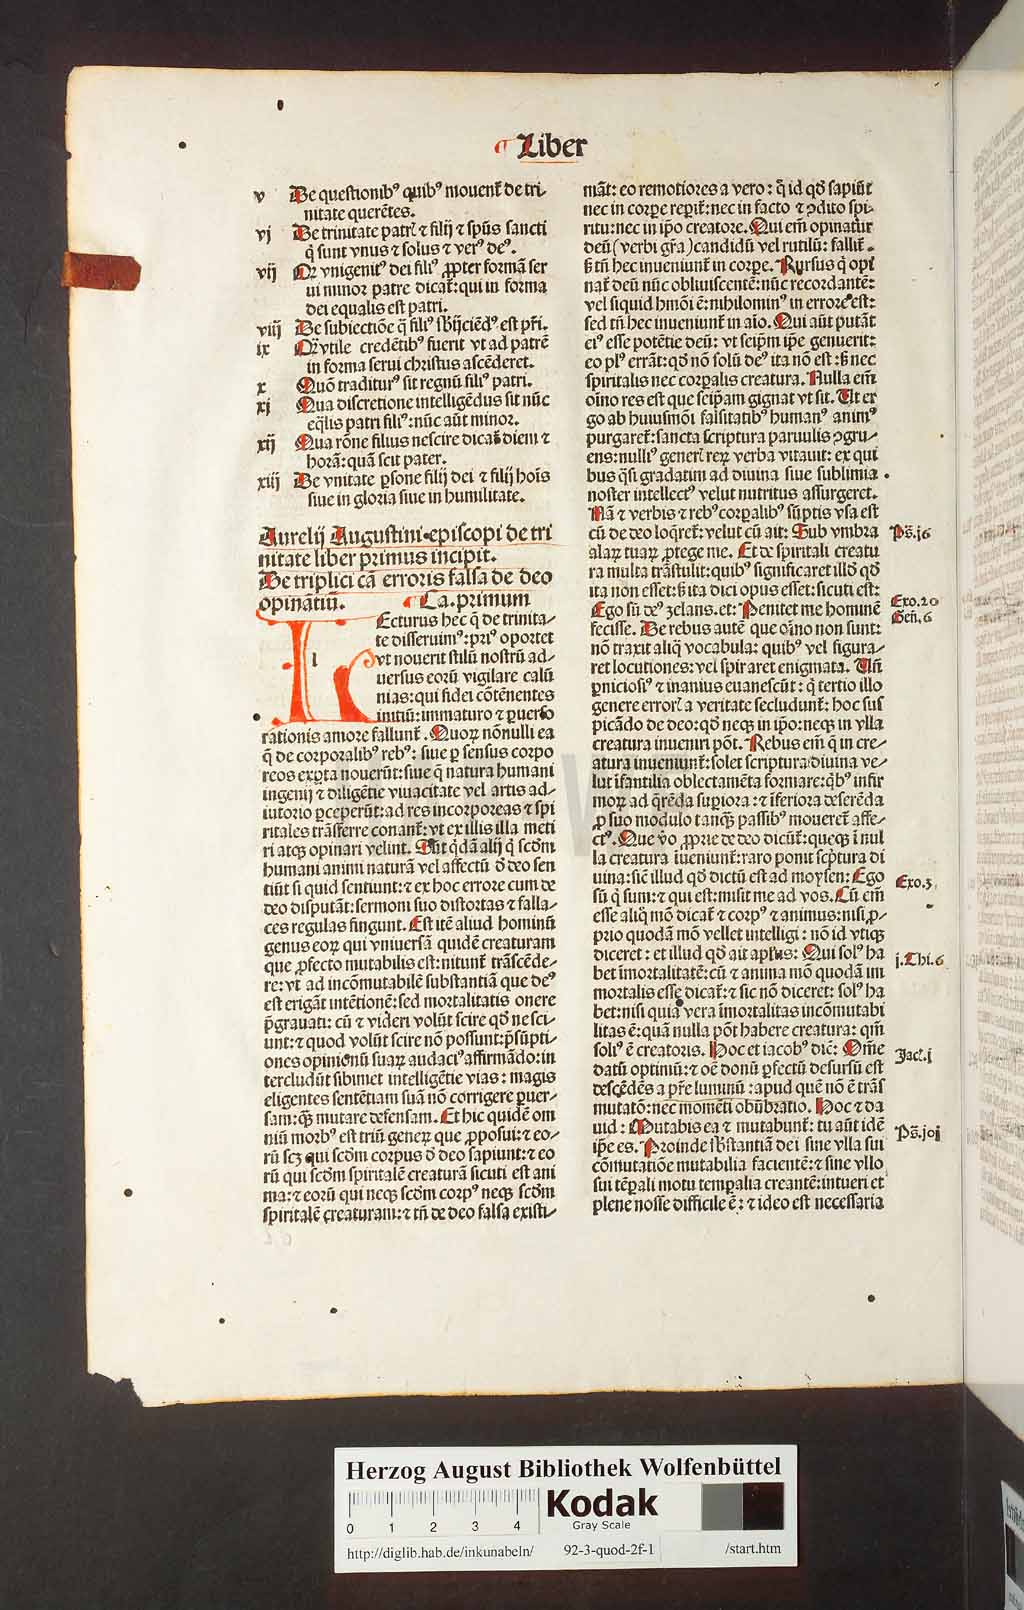 Liber
v De questionibꝰ quibꝰ mouent᷑ de tri-
nitate querētes.
vj De trinitate patrꝭ ⁊ filij ⁊ spūs sancti
q̄ sunt vnus ⁊ solus ⁊ verꝰ deꝰ.
vij Qꝛ vnigenitꝰ dei filiꝰ ꝓpter formā ser
ui minor patre dicat᷑: qui in forma
dei equalis est patri.
viij De subiectiōe q̄ filiꝰ sb̄ijciēdꝰ est pr̄i.
ix Qꝛ vtile credētibꝰ fuerit vt ad patrē
in forma serui christus ascēderet.
x Quō traditurꝰ sit regnū filiꝰ patri.
xj Qua discretione intelligēdus sit nūc
eq̄lis patri filiꝰ: nūc aūt minor.
xij Qua rōne filius nescire dicat᷑ diem ⁊
horā: quā scit pater.
xiij De vnitate ꝑsone filij dei ⁊ filij hoīs
siue in gloria siue in humilitate.
Aurelij Augustini episcopi de tri
nitate liber primus incipit.
De triplici cā erroris falsa de deo
opinātiū. Ca. primum
Lecturus hec q̄ de trinita-
l
te disseruimꝰ: priꝰ oportet
vt nouerit stilū nostrū ad-
uersus eorū vigilare calū
nias: qui fidei cōtēnentes
initiū: immaturo ⁊ ꝑuerso
rationis amore fallunt᷑. Quoꝝ nōnulli ea
q̄ de corporalibꝰ rebꝰ: siue ꝑ sensus corpo
reos exꝑta nouerūt: siue q̄ natura humani
ingenij ⁊ diligētie viuacitate vel artis ad-
iutorio ꝑceperūt: ad res incorporeas ⁊ spi
ritales trāsferre conant᷑: vt ex illis illa meti
ri atqꝫ opinari velint. Sūt q̄dā alij q̄ scd̄m
humani animi naturā vel affectū d̄ deo sen
tiūt si quid sentiunt: ⁊ ex hoc errore cum de
deo disputāt: sermoni suo distortas ⁊ falla-
ces regulas fingunt. Est itē aliud hominū
genus eoꝝ qui vniuersā quidē creaturam
que ꝓfecto mutabilis est: nitunt᷑ trāscēde-
re: vt ad incōmutabilē substantiā que deꝰ
est erigāt intētionē: sed mortalitatis onere
p̄grauati: cū ⁊ videri volūt scire qd̄ nesci-
unt: ⁊ quod volūt scire nō possunt: p̄sūpti-
ones opinionū suaꝝ audaciꝰ affirmādo: in
tercludūt sibimet intelligētie vias: magis
eligentes sentētiam suā nō corrigere ꝑuer-
sam: qꝫ mutare defensam. Et hic quidē om
niū morbꝰ est triū generꝝ que ꝓposui: ⁊ eo-
rū scꝫ qui scd̄m corpus d̄ deo sapiunt: ⁊ eo
rū qui scd̄m spiritalē creaturā sicuti est ani
ma: ⁊ eorū qui neqꝫ scd̄m corpꝰ neqꝫ scd̄m
spiritalē creaturam: ⁊ tn̄ de deo falsa existi-
māt: eo remotiores a vero: q̄ id qd̄ sapiūt
nec in corꝑe reꝑit᷑: nec in facto ⁊ ꝯdito spi-
ritu: nec in ip̄o creatore. Qui em̄ opinatur
deū (verbi gr̄a) candidū vel rutilū: fallit᷑.
sꝫ tn̄ hec inueniunt᷑ in corꝑe. Rursus q̄ opi
nat᷑ deū nūc obliuiscentē: nūc recordantē:
vel siquid hmōi ē: nihilominꝰ in errore est:
sed tn̄ hec inueniunt᷑ in aīo. Qui aūt putāt
eiꝰ esse potētie deū: vt seip̄m ip̄e genuerit:
eo plꝰ errāt: qd̄ nō solū deꝰ ita nō est: sꝫ nec
spiritalis nec corꝑalis creatura. Nulla em̄
oīno res est que seip̄am gignat vt sit. Ut er
go ab huiusmōi falsitatibꝰ humanꝰ animꝰ
purgaret᷑: sancta scriptura paruulis ꝯgru-
ens: nulliꝰ generꝭ reꝝ verba vitauit: ex qui
bus q̄si gradatim ad diuina siue sublimia
noster intellectꝰ velut nutritus assurgeret.
Nā ⁊ verbis ⁊ rebꝰ corꝑalibꝰ sūptis vsa est
cū de deo loq̄ret᷑: velut cū ait: Sub vmbra
alaꝝ tuaꝝ ꝓtege me. Et de spiritali creatu
ra multa trāstulit: quibꝰ significaret illd̄ qd̄
ita non esset: sꝫ ita dici opus esset: sicuti est:
Ego sū deꝰ zelans. et: Penitet me hominē
fecisse. De rebus autē que oīno non sunt:
nō traxit aliq̄ vocabula: quibꝰ vel figura-
ret locutiones: vel spiraret enigmata. Un̄
ꝑniciosiꝰ ⁊ inanius euanescūt: q̄ tertio illo
genere errorꝭ a veritate secludunt᷑: hoc sus
picādo de deo: qd̄ neqꝫ in ip̄o: neqꝫ in vlla
creatura inueniri pōt. Rebus em̄ q̄ in cre-
atura inueniunt᷑: solet scriptura diuina ve-
lut īfantilia oblectamēta formare: q̄bꝰ infir
moꝝ ad q̄rēda suꝑiora: ⁊ īferiora deserēda
ꝓ suo modulo tanqꝫ passibꝰ moueret᷑ affe-
ctꝰ. Que v̄o ꝓprie de deo dicūt᷑: queqꝫ ī nul
la creatura īueniunt᷑: raro ponit scp̄tura di
uina: sic illud qd̄ dictū est ad moysen: Ego
sū q̄ sum: ⁊ qui est: misit me ad vos. Cū em̄
esse aliq̄ mō dicat᷑ ⁊ corpꝰ ⁊ animus: nisi ꝓ-
prio quodā mō vellet intelligi: nō id vtiqꝫ
diceret: et illud qd̄ ait apl̄us: Qui solꝰ ha
bet īmortalitatē: cū ⁊ anima mō quodā im
mortalis esse dicat᷑: ⁊ sic nō diceret: solꝰ ha
bet: nisi quia vera īmortalitas incōmutabi
litas ē: quā nulla pōt habere creatura: qm̄
soliꝰ ē creatoris. Hoc et iacobꝰ dic̄: Om̄e
datū optimū: ⁊ oē donū ꝑfectū desursū est
descēdēs a pr̄e luminū: apud quē nō ē trās
mutatō: nec momēti obūbratio. Hoc ⁊ da
uid: Mutabis ea ⁊ mutabunt᷑: tu aūt idē
ip̄e es. Proinde sb̄stantiā dei sine vlla sui
cōmutatiōe mutabilia facientē: ⁊ sine vllo
sui tēꝑali motu temꝑalia creantē: intueri et
plene nosse difficile ē: ⁊ ideo est necessaria
Ps̄.j6
Exo.20
Gen̄.6
Exo.3
j.Thi.6
Jact.j
Ps̄.joj
Herzog August Bibliothek Wolfenbüttel
0 1 2 3 4
Kodak
Gray Scale
http://diglib.hab.de/inkunabeln/ 92-3-quod-2f-1 /start.htm